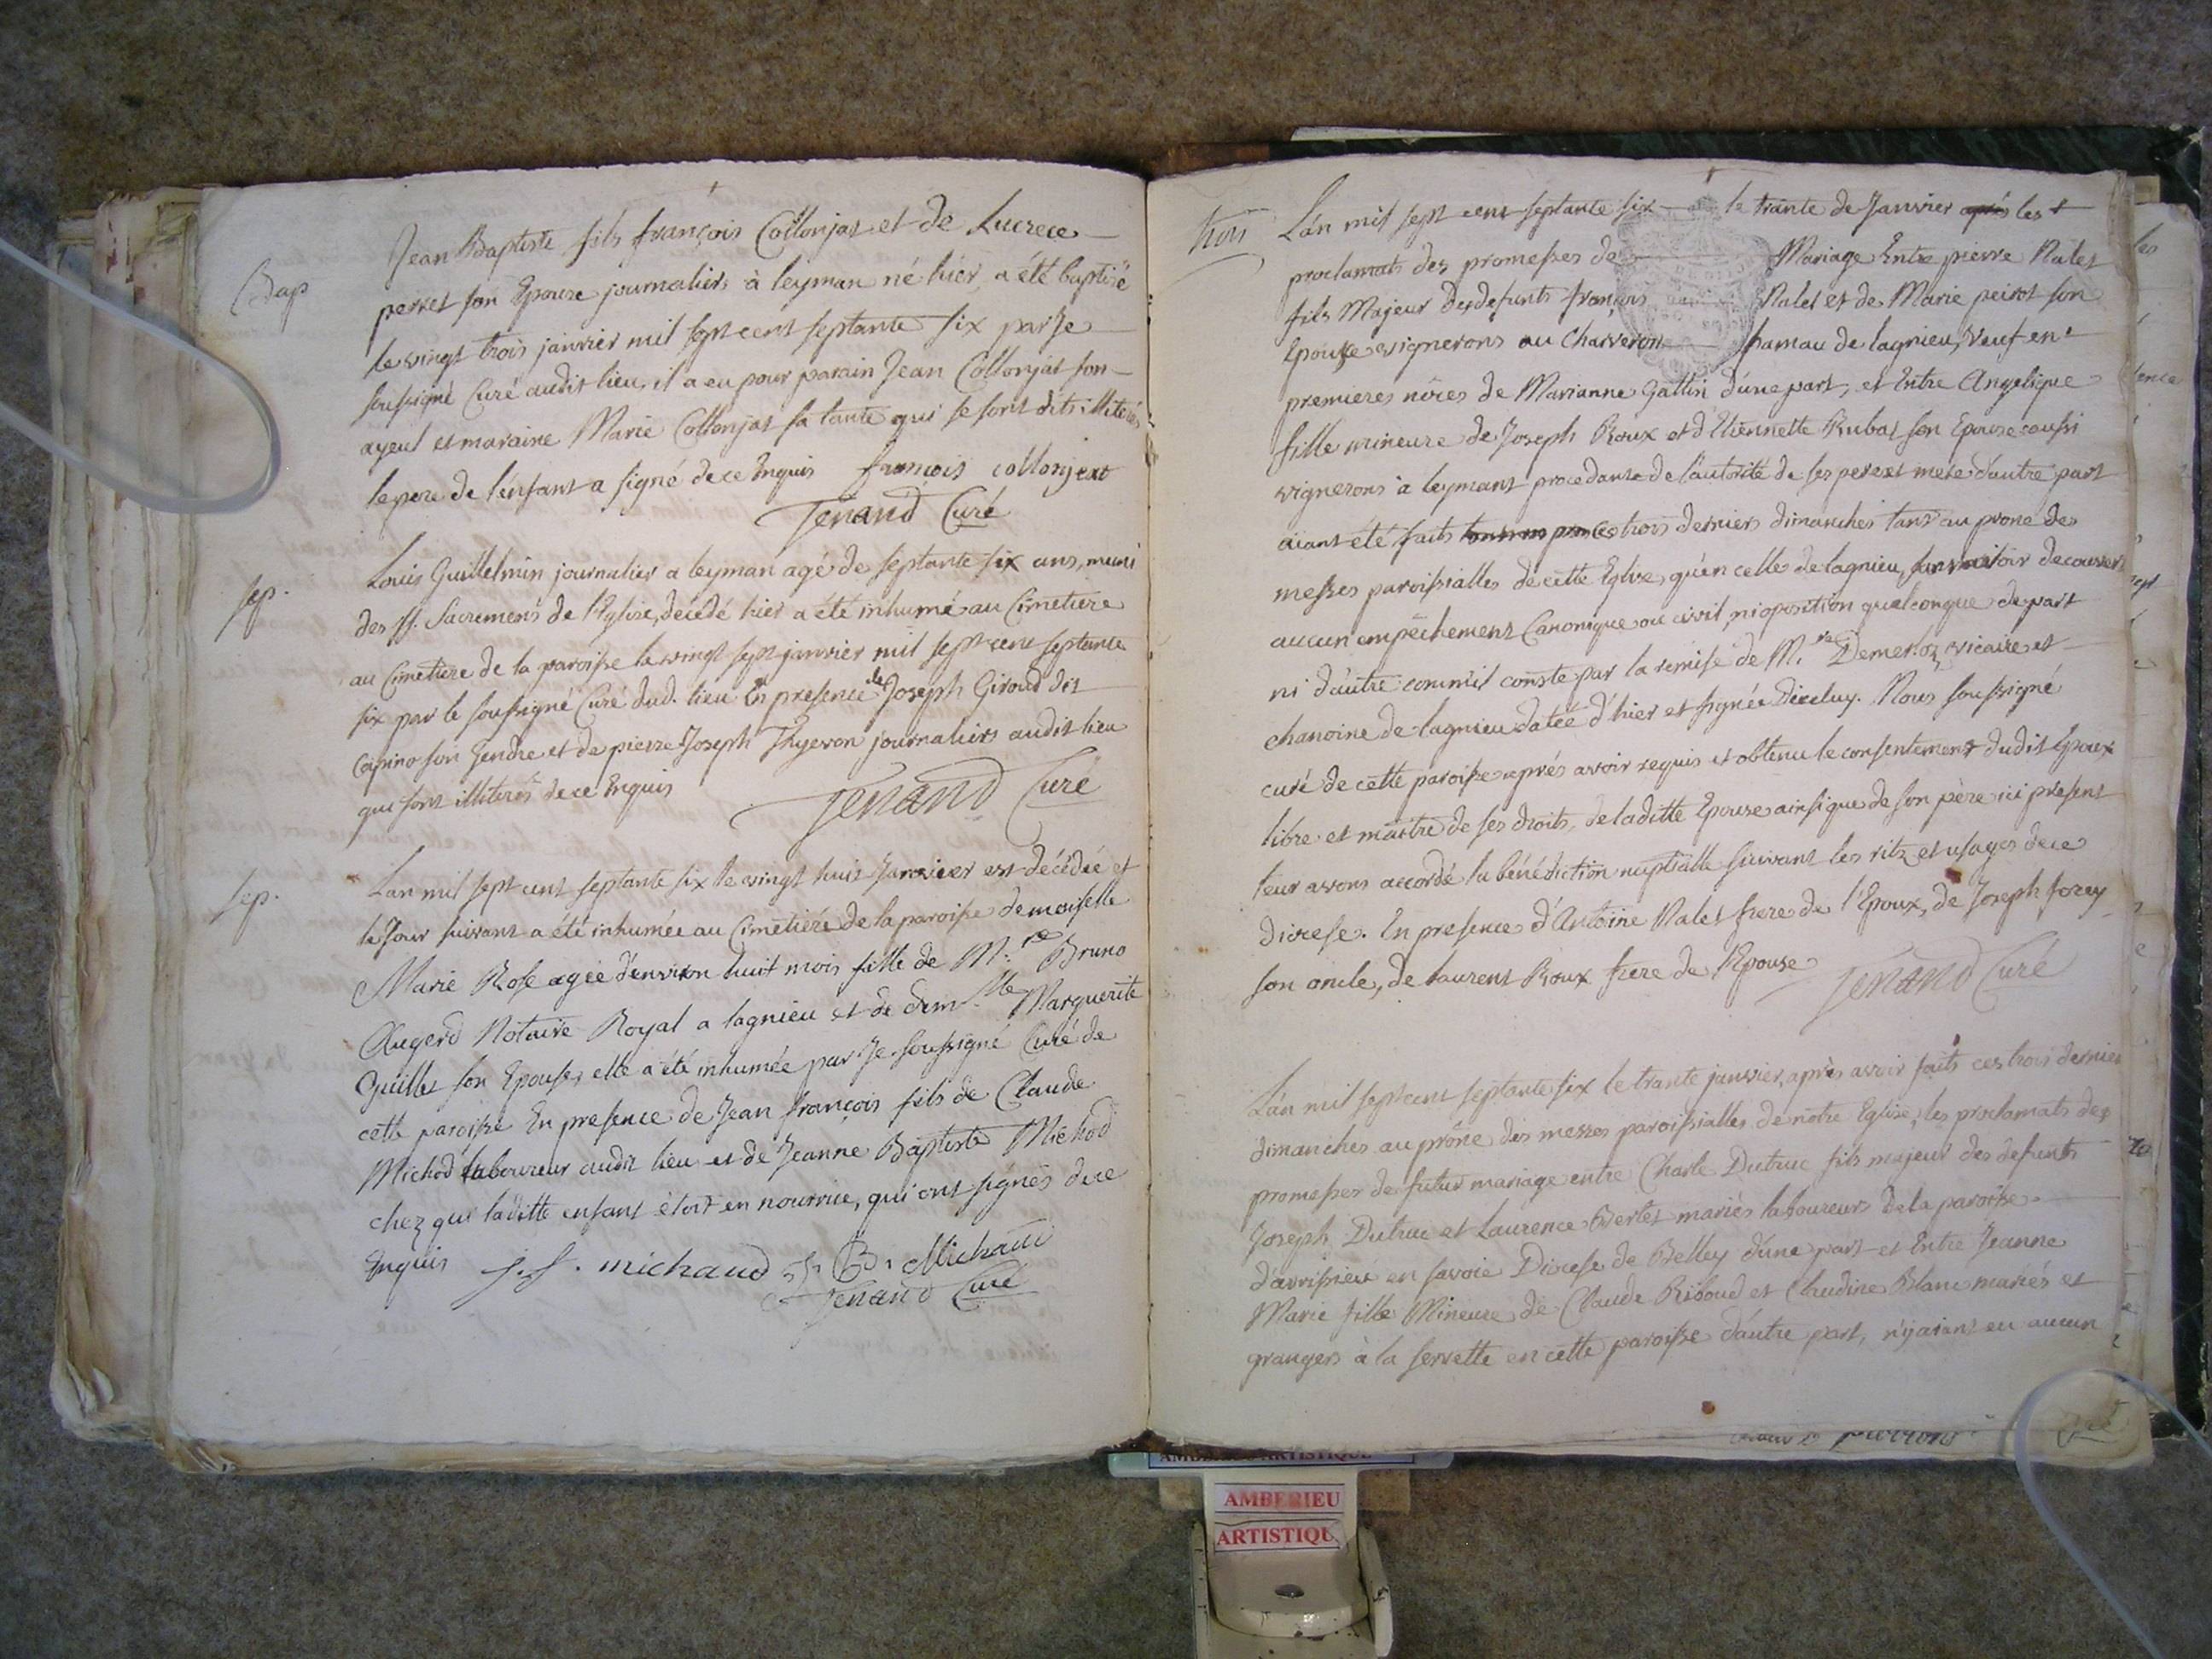 Bap
Jean Baptiste fils françois Collonjat et de Lucrece
perret son Epouse journaliers à leyman né hier a été baptisé
le vingt trois janvier mil sept cent septante six par Je
soussigné Curé audit lieu, il a eu pour parain Jean Collonjat son
ayeul et maraine Marie Collonjat sa tante qui se sont dits illiterés
le pere de l'enfant a signé de ce Enquis francois collonjeat
Tenand Curé
sep.
Louis Guillelmin journalier a leyman agé de septante six ans, muni
des SS. Sacremens de l'Eglise, décédé hier a été inhumé au Cimetiere
au Cimetiere de la paroisse le vingt sept janvier mil sept cent septante
six par le soussigné Curé dud. lieu En presence de Joseph Giroud dit
Capino son Gendre et de pierre Joseph Thyevon journaliers audit lieu
qui sont illiterés de ce Enquis
Tenand Curé
sep.
L'an mil sept cent septante six le vingt huit Janvier est décédée et
le Jour suivant a été inhumée au Cimetiére de la paroisse demoiselle
Marie Rose agée d'environ huit mois fille de M.re Bruno
Augerd Notaire Royal a lagnieu et de dem.lle Marguerite
Guillet son Epouse, elle a été inhumée par Je soussigné Curé de
cette paroisse En presence de Jean françois fils de Claude
Michod laboureur audit lieu et de Jeanne Baptiste Michod
chez qui laditte enfant étoit en nourrice, qui ont signés de ce
Enquis J. f. michaud J. B. Michaud
Tenand Curé
L'an mil sept cent septante six le trante de Janvier après les
proclamats des promesses de Mariage Entre pierre Nalet
fils Majeur des defunts françois Nalet et de Marie peirot son
Epouse vignerons au Charveron hamau de lagnieu, Veuf en
premieres nôces de Marianne Gattin d'une part, et Entre Angelique
fille mineure de Joseph Roux et d'Etiennette Rubat son Epouse aussi
vignerons à leymant procedante de l'autorité de ses pere et mere d'autre part
aiant été faits ces trois derniers dimanches tant au prone des
messes paroissialles de cette Eglise, qu'en celle de lagnieu, sans avoir decouvert
aucun empêchement Canonique ou civil, ni oposition quelconque de part
ni d'autre comm'il conste par la remise de M.re Demerloz vicaire et
chanoine de lagnieu datée d'hier et signée d'iceluy. Nous soussigné
curé de cette paroisse aprés avoir requis et obtenu le consentement dudit Epoux
libre et maitre de ses droits, de laditte Epouse ainsi que de son père ici present
leur avons accordé la bénédiction nuptialle suivant les rits et usages de ce
diocese. En presence d'Antoine Nalet frere de l'Epoux, de Joseph forey
son oncle, de laurent Roux frere de l'Epouse Tenand Curé
L'an mil sept cent septante six le trante janvier, après avoir faits ces trois dernier
dimanches au prône des messes paroissialles de nôtre Eglise, les proclamats des
promesses de futur mariage entre Charle Dutruc fils majeur des defunts
Joseph Dutruc et Laurence Berlet mariés laboureurs de la paroisse
d'avrissieu en savoie Diocese de Belley d'une part et Entre Jeanne
Marie fille Mineure de Claude Riboud et Claudine Blanc mariés et
grangers à la servette en cette paroisse d'autre part, n'y aiant eu aucun
AMBERIEU
ARTISTIQU